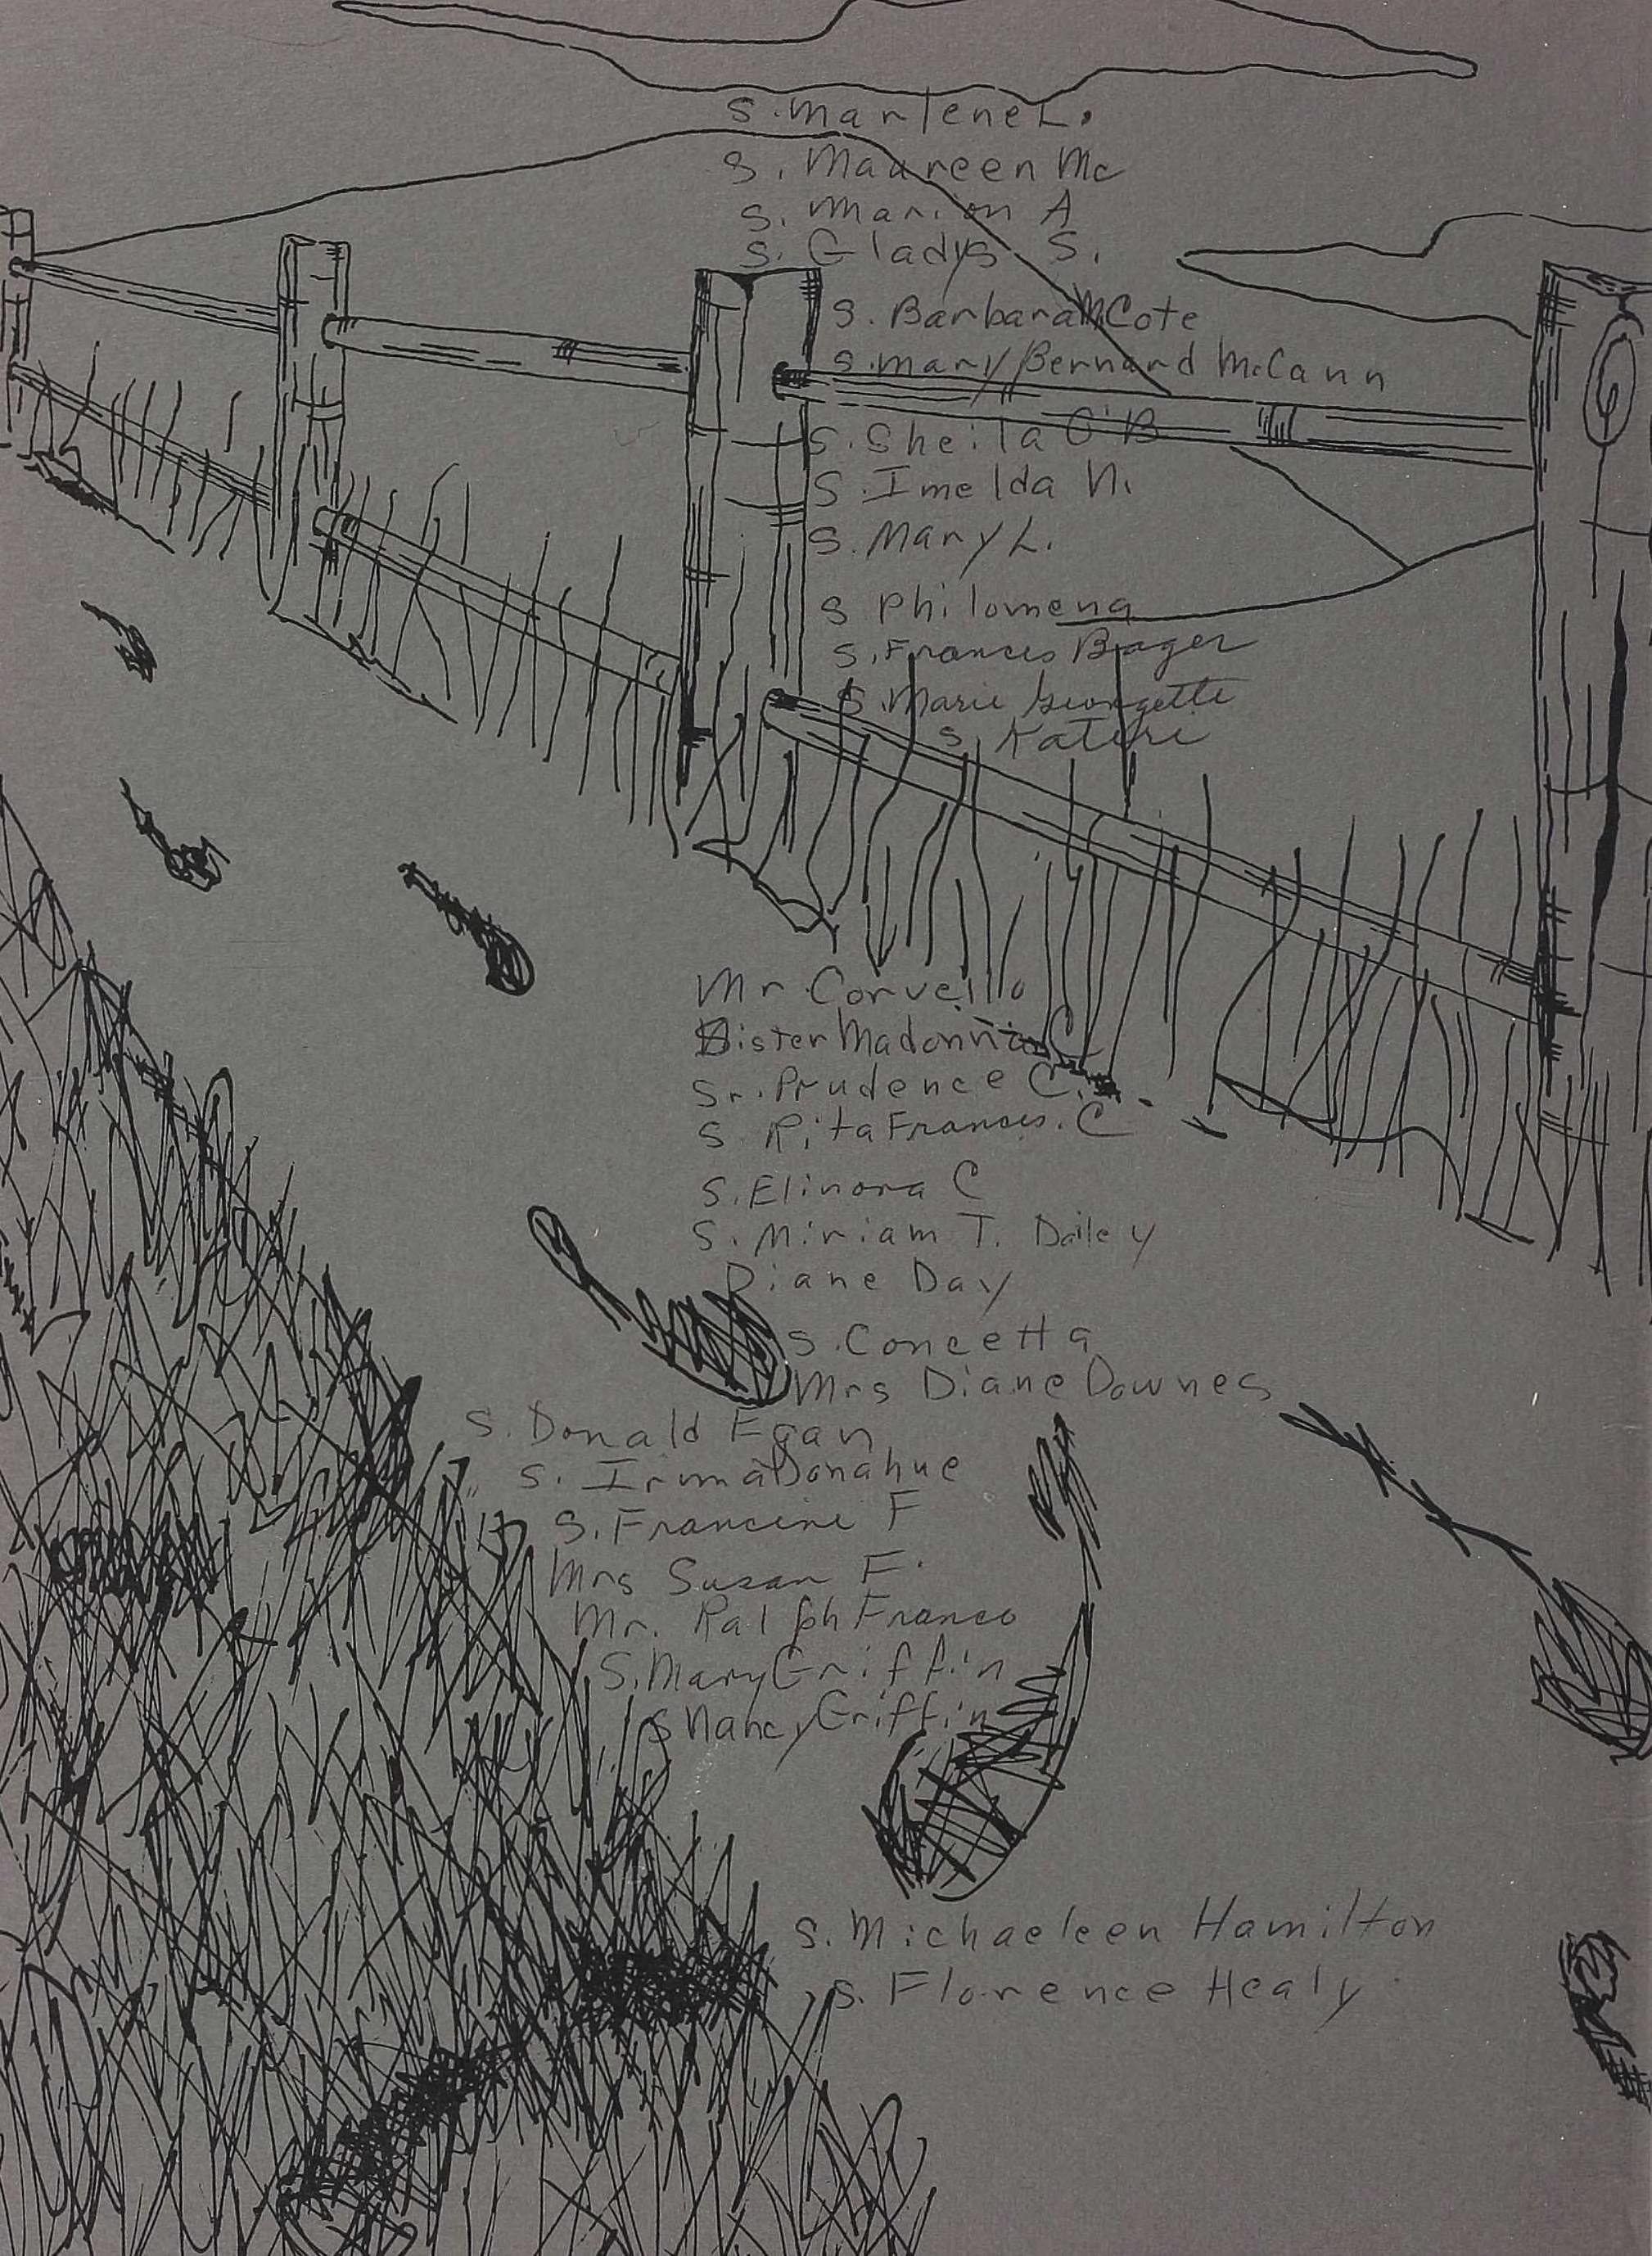 S. Marlene L.
S. Maureen Mc
S. Marion A
S. Gladys S.
S. Barbara McCote
S. Mary Bernard McCann
S. Sheila O'B
S. Imelda N.
S. Mary L.
S Philomena
S. Frances Bager
S. Marie Georgette
S. Kateri
Mr. Corvello
Sister Madonna C
Sr. Prudence C.
S. Rita Frances. C
S. Elinora C
S. Miriam T. Dailey
Diane Day
S. Concetta
Mrs Diane Downes
S. Donald Egan
S. Irma Donahue
S. Francine F
Mrs Susan F.
Mr. Ralph Franco
S. Mary Griffin
S Nancy Griffin
S. Michaeleen Hamilton
S. Florence Healy